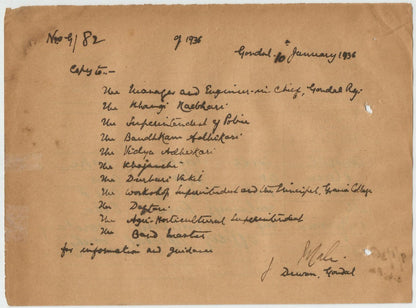 No G/82 of 1936
Gondal, 10 January 1936
Copy to:-
The Manager and Engineer-in-Chief, Gondal Ry.
The Khangi Karbhari
The Superintendent of Police
The Bandhkam Adhikari
The Vidya Adhikari
The Khajanchi
The Durbari Vakil
The Workshop Superintendent and the Principal, Grasia College
The Daftari
The Agri-Horticultural Superintendent
The Band Master
for information and guidance
Dewan, Gondal